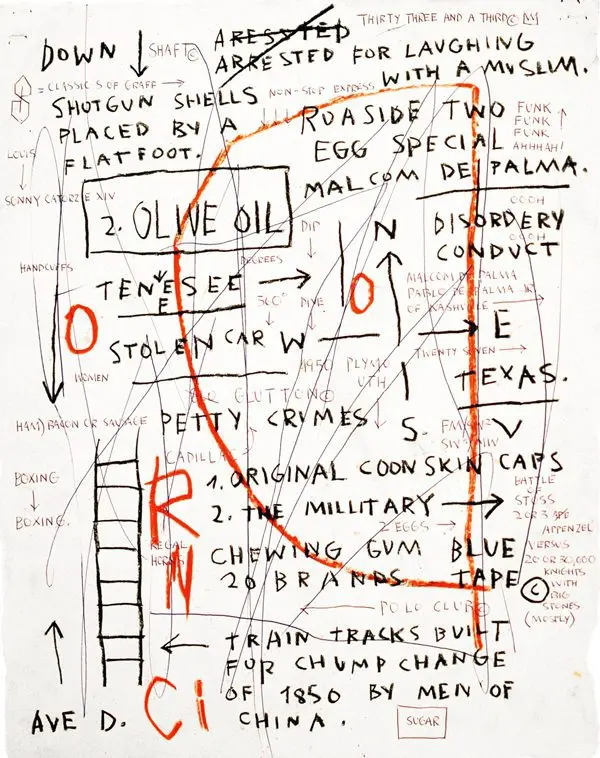 THIRTY THREE AND A THIRD©
DOWN ↓ SHAFT©
ARESSTED
ARRESTED FOR LAUGHING
WITH A MUSLIM.
= CLASSICS OF GRAFF →
NON-STOP EXPRESS
SHOTGUN SHELLS
PLACED BY A
FLATFOOT.
ROASIDE TWO
EGG SPECIAL
MALCOM DE PALMA.
FUNK
FUNK
FUNK
AHHHAH!
LOUIS
↓
SONNY CATORZE XIV
2. OLIVE OIL
OOOH
DISORDERY
OOOH
CONDUCT
DIP
N
HANDCUFFS
DEGREES
TENESEE →
E
360°
DIVE
O
O
MALCOM DE PALMA
PABLO DE PALMA JR.
OF NASHVILLE →
STOLEN CAR
W — → E
TWENTY SEVEN →
1950 PLYMO
UTH
WOMEN
TEXAS.
GLUTTON©
HAM) BACON OR SAUSAGE
PETTY CRIMES
S.
V
CADILLAC
1. ORIGINAL COONSKIN CAPS
2. THE MILLITARY →
BOXING
↓
BOXING.
R
N
2 EGGS →
BATTLE
OF
STOSS
2 OR 3 APE
APPENZEL
VERSUS
20 OR 30,000
KNIGHTS
WITH
BIG
STONES
(MOSTLY)
REGAL
CHEWING GUM BLUE
20 BRANDS TAPE ©
← POLO CLUB©
← TRAIN TRACKS BUILT
FOR CHUMP CHANGE
OF 1850 BY MEN OF
CHINA.
Ci
AVE D.
SUGAR